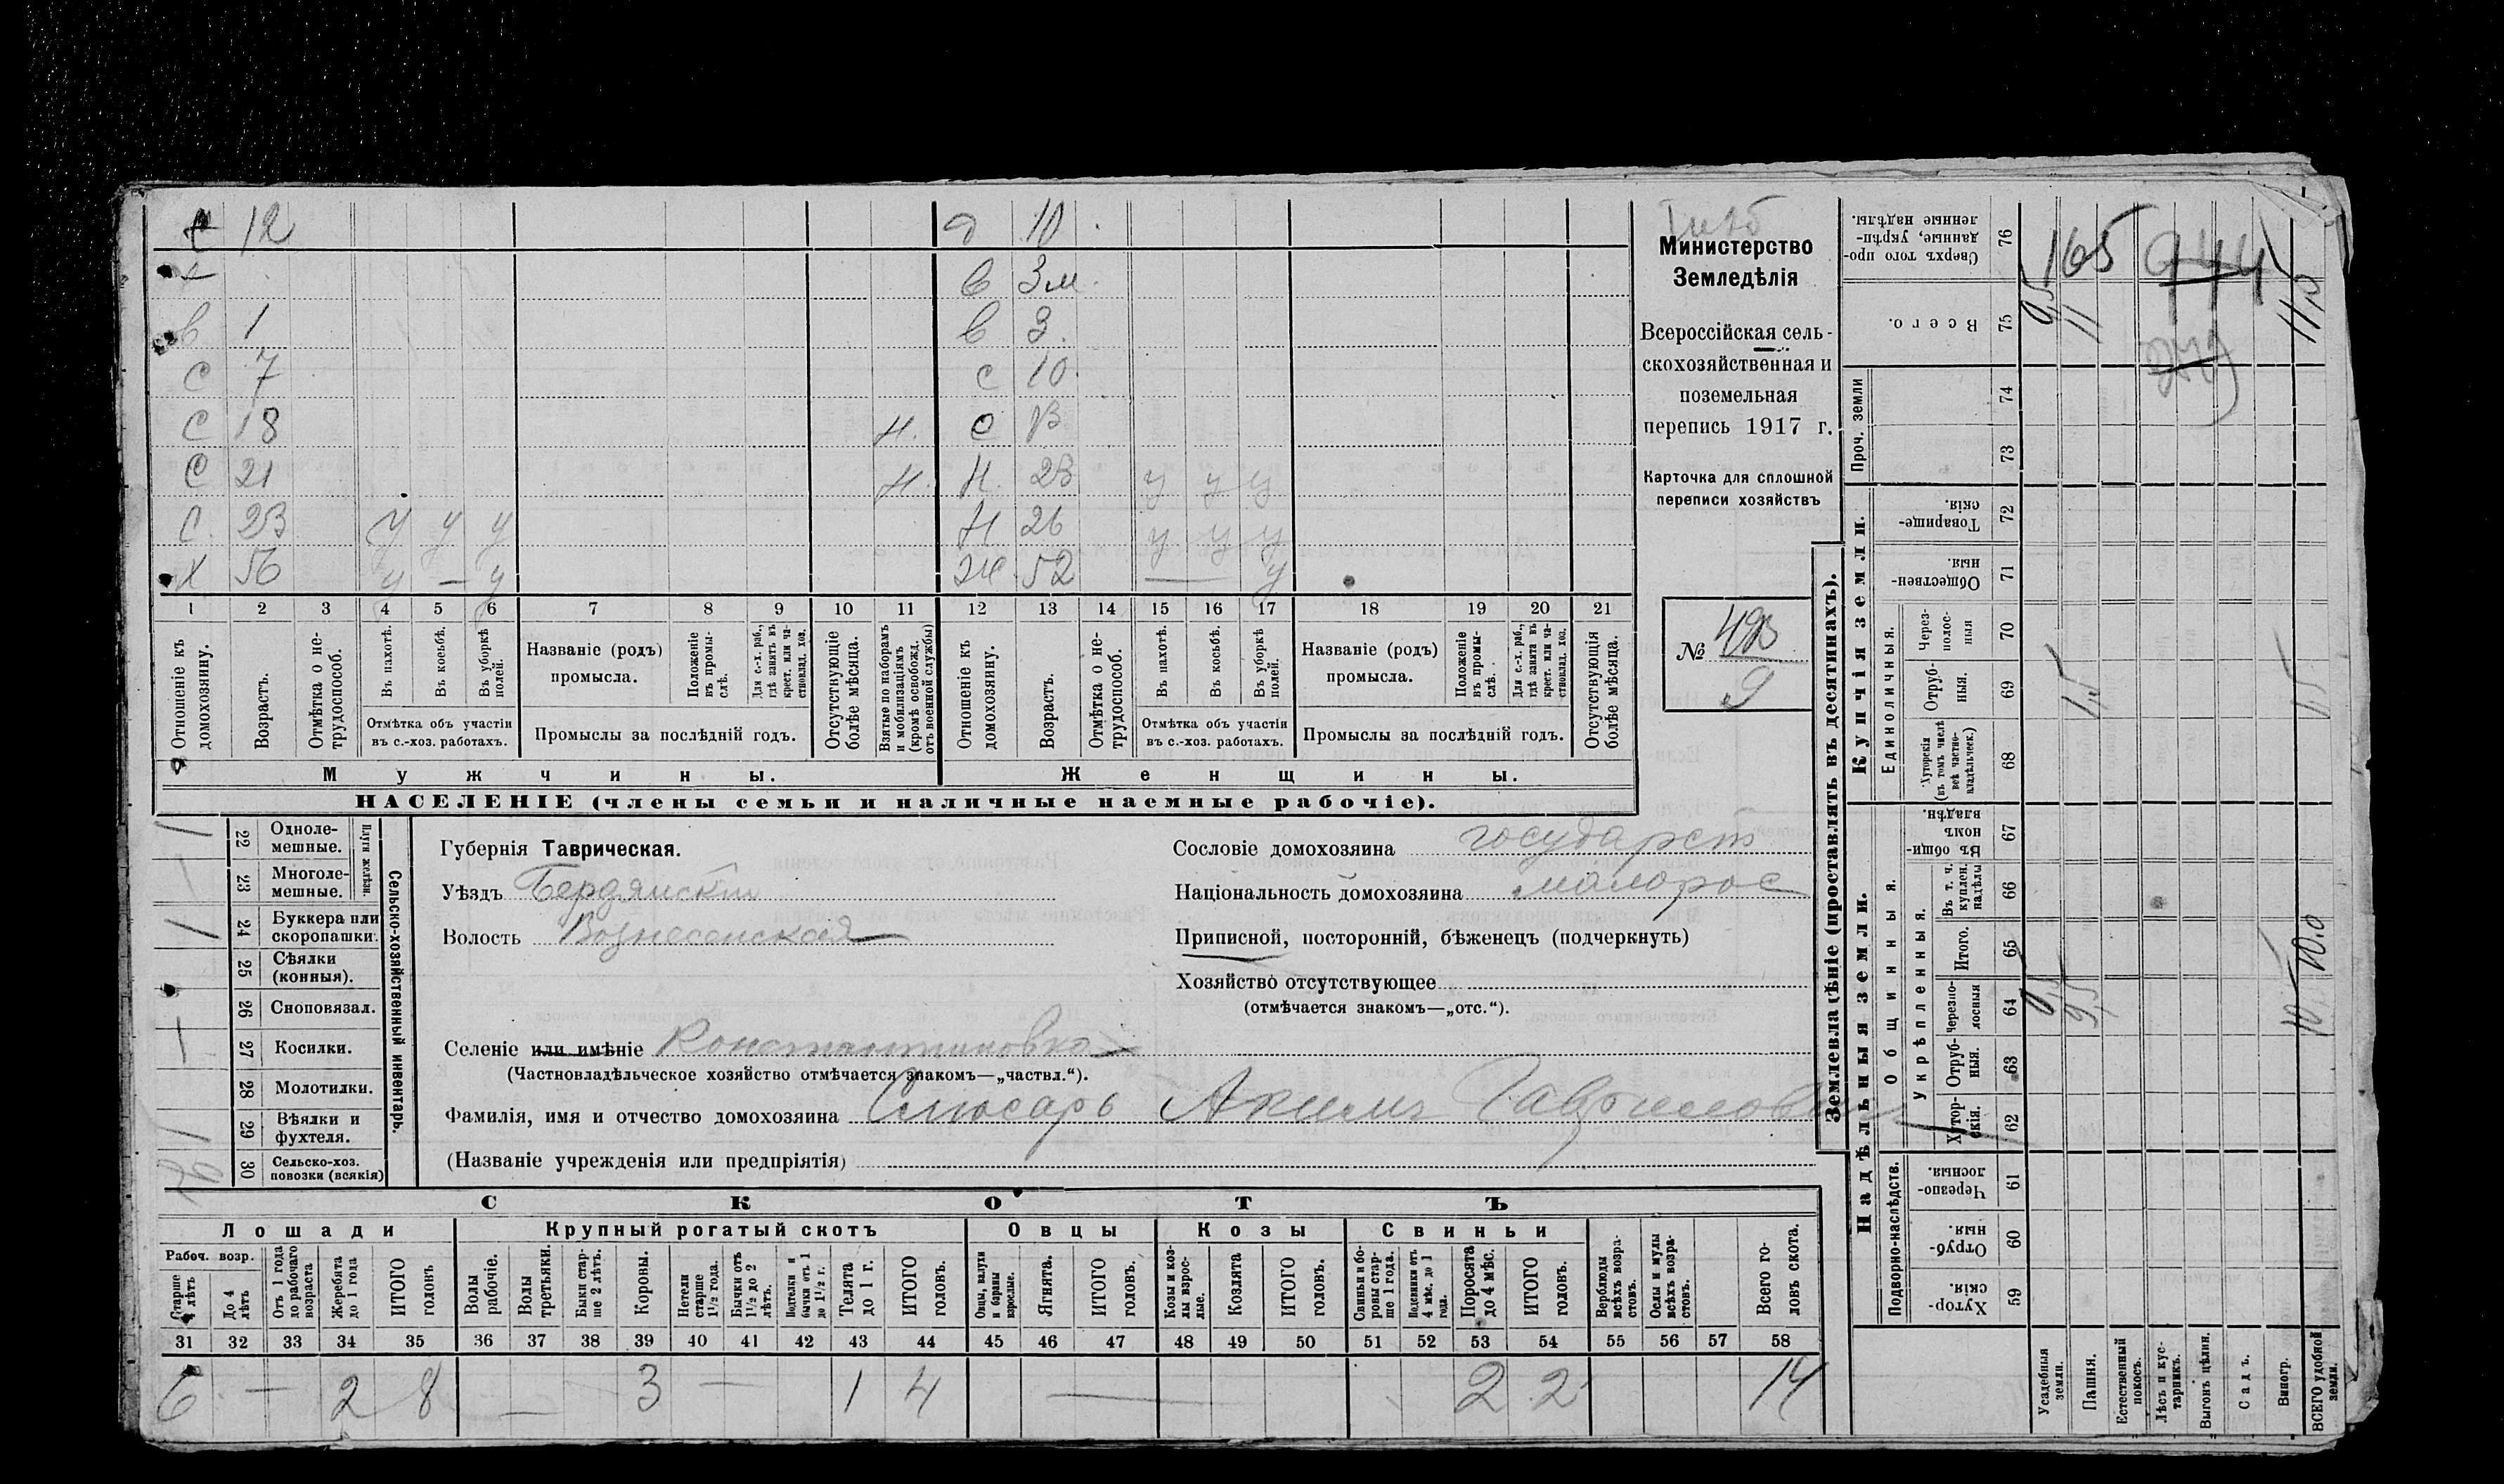 с 12 д 10
в 3м.
в 1 в 3
с 7 с 10
с 18 н. с 13
с 21 н. н. 23 у у у
с. 23 у у у н 26 у у у
х 56 у — у ж. 52 — у
1 2 3 4 5 6 7 8 9 10 11 12 13 14 15 16 17 18 19 20 21
Отношеніе къ домохозяину.
Возрастъ.
Отмѣтка о не-
трудоспособ.
Въ пахотѣ.
Въ косьбѣ.
Въ уборкѣ полей.
Отмѣтка объ участіи
въ с.-хоз. работахъ.
Названіе (родъ)
промысла.
Положеніе въ промы-
слѣ.
Для с.-х. раб.,
гдѣ занятъ въ
крест. или ча-
стновлад. хоз.
Промыслы за послѣдній годъ.
Отсутствующіе
болѣе мѣсяца.
Взятые по наборамъ
и мобилизаціямъ
(кромѣ освобожд.
отъ военной службы)
Отношеніе къ
домохозяину.
Возрастъ.
Отмѣтка о не-
трудоспособ.
Въ пахотѣ.
Въ косьбѣ.
Въ уборкѣ
полей.
Отмѣтка объ участіи
въ с.-хоз. работахъ.
Названіе (родъ)
промысла.
Положеніе
въ промы-
слѣ.
Для с.-х. раб.,
гдѣ занята въ
крест. или ча-
стновлад. хоз.
Промыслы за послѣдній годъ.
Отсутствующія
болѣе мѣсяца.
Мужчины. Женщины.
НАСЕЛЕНІЕ (члены семьи и наличные наемные рабочіе).
Министерство
Земледѣлія
Всероссійская сель-
скохозяйственная и
поземельная
перепись 1917 г.
Карточка для сплошной
переписи хозяйствъ
№ 493
9
22 Одноле-
мешные. 1
23 Многоле-
мешные. 1
Плуги желѣзн.
24 Буккера или
скоропашки. 1
25 Сѣялки
(конныя). —
26 Сноповязал.
27 Косилки. 1
28 Молотилки.
29 Вѣялки и
фухтеля. 1
30 Сельско-хоз.
повозки (всякія)
Сельско-хозяйственный инвентарь.
Губернія Таврическая.
Уѣздъ Бердянскій
Волость Вознесенская
Сословіе домохозяина государст
Національность домохозяина малорос
Приписной, посторонній, бѣженецъ (подчеркнуть)
Хозяйство отсутствующее
(отмѣчается знакомъ—„отс.“).
Селеніе или имѣніе Константиновка
(Частновладѣльческое хозяйство отмѣчается знакомъ—„частвл.“).
Фамилія, имя и отчество домохозяина Слюсарь Акимъ Гавриловичъ
(Названіе учрежденія или предпріятія)
СКОТЪ
Лошади Крупный рогатый скотъ Овцы Козы Свиньи
Рабоч. возр.
Старше 4 лѣтъ
До 4 лѣтъ
Отъ 1 года
до рабочаго
возраста
Жеребята
до 1 года
ИТОГО
головъ
Волы
рабочіе.
Волы
третьяки.
Быки стар-
ше 2 лѣтъ.
Коровы.
Нетели
старше
1½ года.
Бычки отъ
1½ до 2
лѣтъ.
Подтелки и
бычки отъ 1
до 1½ г.
Телята
до 1 г.
ИТОГО
головъ.
Овцы, валухи
и бараны
взрослые.
Ягнята.
ИТОГО
головъ.
Козы и коз-
лы взрос-
лые.
Козлята
ИТОГО
головъ.
Свиньи и бо-
ровы стар-
ше 1 года.
Подсвинки отъ
4 мѣс. до 1
года.
Поросята
до 4 мѣс.
ИТОГО
головъ.
Верблюды
всѣхъ возра-
стовъ.
Ослы и мулы
всѣхъ возра-
стовъ.
Всего го-
ловъ скота.
31 32 33 34 35 36 37 38 39 40 41 42 43 44 45 46 47 48 49 50 51 52 53 54 55 56 57 58
6 — 2 8 — 3 — 1 4 — 2 2 14
Землевладѣніе (проставлять въ десятинахъ).
Надѣльныя земли. Купчія земли.
Подворно-наслѣдств.
Общинныя.
Укрѣпленныя.
Единоличныя.
Проч. земли
Хутор-
скія. 59
Отруб-
ныя. 60
Черезпо-
лосныя. 61
Хутор-
скія. 62
Отруб-
ныя. 63
Черезпо-
лосныя 64
Итого. 65
Въ т. ч.
куплен.
надѣлы 66
Въ общи-
номъ
владѣн. 67
Хуторскія
(въ томъ числѣ
всѣ частно-
владѣльческ.) 68
Отруб-
ныя. 69
Через-
полос-
ныя 70
Обществен-
ныя. 71
Товарище-
скія. 72
73
74
Всего. 75
Сверхъ того про-
данные, укрѣп-
ленные надѣлы. 76
Усадебныя
земли.
Пашня.
Естественный
покосъ.
Лѣсъ и кус-
тарникъ.
Выгонъ цѣлин.
Садъ.
Виногр.
ВСЕГО удобной
земли.
9,5
1,5
11
165
944
10
10.0
1,5
11,5